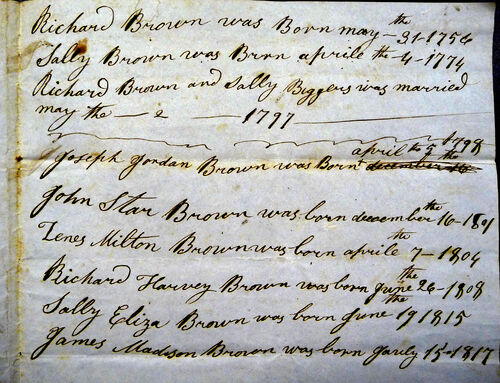 Richard Brown was Born may the 31-1754
Sally Brown was Brrn aprile the -4-1774
Richard Brown and Sally Biggers was married
may the - 2 - 1797
april the 5 1798
Joseph Jordan Brown was Born december the
John Star Brown was born december the 16-1801
Zenes Milton Brown was born aprile the 7-1804
Richard Harvey Brown was born June the 26-1808
Sally Eliza Brown was born June the 19 1815
James Madison Brown was born Jauly 15-1817